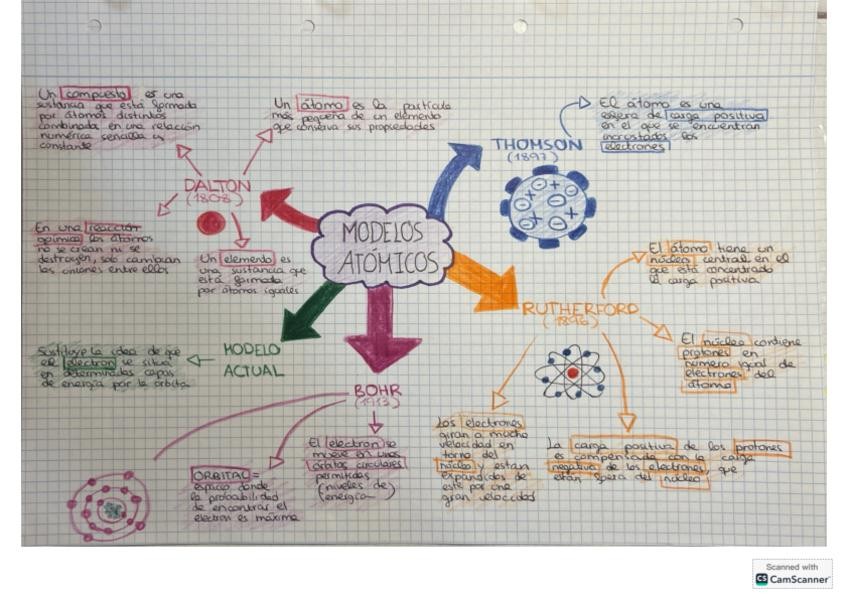 MODELOS
ATÓMICOS
DALTON
(1808)
Un compuesto es una
sustancia que está formada
por átomos distintos
combinada en una relación
numérica sencilla
constante
Un átomo es la partícula
más pequeña de un elemento
que conserva sus propiedades
En una reacción
química los átomos
no se crean ni se
destruyen, solo cambian
las uniones entre ellos
Un elemento es
una sustancia que
está formada
por átomos iguales
THOMSON
(1897)
El átomo es una
esfera de carga positiva
en el que se encuentran
incrustados los
electrones
RUTHERFORD
El átomo tiene un
núcleo central en el
que está concentrado
la carga positiva
El núcleo contiene
protones en
número igual de
electrones del
átomo
La carga positiva de los protones
es compensada con la carga
negativa de los electrones, que
están fuera del núcleo
Los electrones
giran a mucha
velocidad en
torno del
núcleo y estan
de
este por una
gran velocidad
BOHR
(1913)
El electron se
mueve en unos
órbitas circulares
permitidas
(niveles de)
(energía)
ORBITAL =
espacio donde
la probabilidad
de encontrar el
electron es máxima
MODELO
ACTUAL
Sustituye la idea de que
el electron se situa
en determinadas capas
de energía por la órbita
Scanned with
CS CamScanner